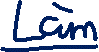 Làm